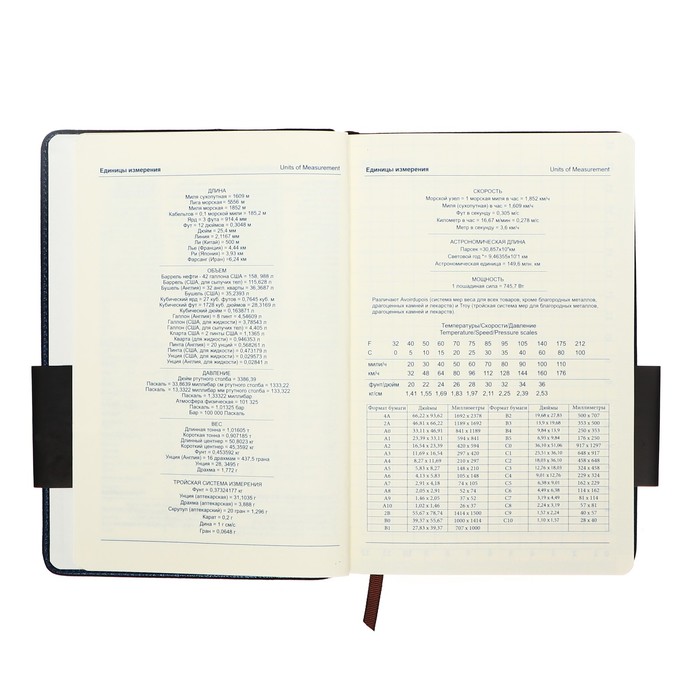 Единицы измерения Units of Measurement
ДЛИНА
Миля сухопутная = 1609 м
Лига морская = 5556 м
Миля морская = 1852 м
Кабельтов = 0,1 морской мили = 185,2 м
Ярд = 3 фута = 914,4 мм
Фут = 12 дюймов = 0,3048 м
Дюйм = 25,4 мм
Линия = 2,1167 мм
Ли (Китай) = 500 м
Лье (Франция) = 4,44 км
Ри (Япония) = 3,93 км
Фарсанг (Иран) =6,24 км
ОБЪЕМ
Баррель нефти - 42 галлона США = 158, 988 л
Баррель (США, для сыпучих тел) = 115,628 л
Бушель (Англия) = 32 англ. кварты = 36,3687 л
Бушель (США) = 35,2393 л
Кубический ярд = 27 куб. футов = 0,7645 куб. м
Кубический фут = 1728 куб. дюймов = 28,3169 л
Кубический дюйм = 0,163871 л
Галлон (Англия) = 8 пинт = 4,54609 л
Галлон (США, для жидкости) = 3,78543 л
Галлон (США, для сыпучих тел) = 4,405 л
Кварта США = 2 пинты США = 1,1365 л
Кварта (для жидкости) = 0,946353 л
Пинта (Англия) = 20 унций = 0,568261 л
Пинта (США, для жидкости) = 0,473179 л
Унция (США, для жидкости) = 0,029573 л
Унция (Англия, для жидкости) = 0,02841 л
ДАВЛЕНИЕ
Дюйм ртутного столба = 3386,39
Паскаль = 33,8639 миллибар см ртутного столба = 1333,22
Паскаль = 13,3322 миллибар мм ртутного столба = 133,322
Паскаль = 1,33322 миллибар
Атмосфера физическая = 101 325
Паскаль = 1,01325 бар
Бар = 100 000 Паскаль
ВЕС
Длинная тонна = 1,01605 т
Короткая тонна = 0,907185 т
Длинный центнер = 50,8023 кг
Короткий центнер = 45,3592 кг
Фунт = 0,453592 кг
Унция (Англия) = 16 драхмам = 437.5 грана
Унция = 28, 3495 г
Драхма = 1,772 г
ТРОЙСКАЯ СИСТЕМА ИЗМЕРЕНИЯ
Фунт = 0,37324177 кг
Унция (аптекарская) = 31,1035 г
Драхма (аптекарская) = 3,888 г
Скрупул (аптекарский) = 20 гран = 1,296 г
Карат = 0,2 г
Дина = 1 г см/с
Гран = 0,0648 г
Единицы измерения Units of Measurement
СКОРОСТЬ
Морской узел = 1 морская миля в час = 1,852 км/ч
Миля (сухопутная) в час = 1,609 км/ч
Фут в секунду = 0,305 м/с
Километр в час = 16,67 м/мин = 0,278 м/с
Метр в секунду = 3,6 км/ч
АСТРОНОМИЧЕСКАЯ ДЛИНА
Парсек =30,857х10³км
Световой год = 9,46355х10¹км
Астрономическая единица = 149,6 млн. км
МОЩНОСТЬ
1 лошадиная сила = 745,7 Вт
Различают Avoirdupois (система мер веса для всех товаров, кроме благородных металлов,
драгоценных камней и лекарств) и Troy (тройская система мер для благородных металлов,
драгоценных камней и лекарств)
Температуры/Скорости/Давление
Temperature/Speed/Pressure scales
F 32 40 50 60 70 75 85 95 105 140 175 212
C 0 5 10 15 20 25 30 35 40 60 80 100
мили/ч 20 30 40 50 60 70 80 90 100 110
км/ч 32 48 64 80 96 112 128 144 160 176
фунт/дюйм 20 22 24 26 28 30 32 34 36
кг/см 1,41 1,55 1,69 1,83 1,97 2,11 2,25 2,39 2,53
Формат бумаги Дюймы Миллиметры Формат бумаги Дюймы Миллиметры
4A 66,22 x 93,62 1692 x 2378 B2 19,68 x 27,83 500 x 707
2A 46,81 x 66,22 1189 x 1692 B3 13,9 x 19,68 353 x 500
A0 33,11 x 46,81 841 x 1189 B4 9,84 x 13,9 250 x 353
A1 23,39 x 33,11 594 x 841 B5 6,93 x 9,84 176 x 250
A2 16,54 x 23,39 420 x 594 C0 36,10 x 51,06 917 x 1297
A3 11,69 x 16,54 297 x 420 C1 25,51 x 36,10 648 x 917
A4 8,27 x 11,69 210 x 297 C2 18,03 x 25,51 458 x 648
A5 5,83 x 8,27 148 x 210 C3 12,76 x 18,03 324 x 458
A6 4,13 x 5,83 105 x 148 C4 9,02 x 12,76 229 x 324
A7 2,91 x 4,18 74 x 105 C5 6,38 x 9,01 162 x 229
A8 2,05 x 2,91 52 x 74 C6 4,49 x 6,38 114 x 162
A9 1,46 x 2,05 37 x 52 C7 3,19 x 4,49 81 x 114
A10 1,02 x 1,46 26 x 37 C8 2,24 x 3,19 57 x 81
2B 55,67 x 78,74 1414 x 1500 C9 1,57 x 2,24 40 x 57
B0 39,37 x 55,67 1000 x 1414 C10 1,10 x 1,57 28 x 40
B1 27,83 x 39,37 707 x 1000